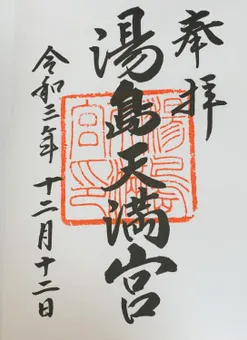 奉拝
湯島天満宮
令和三年十二月十二日